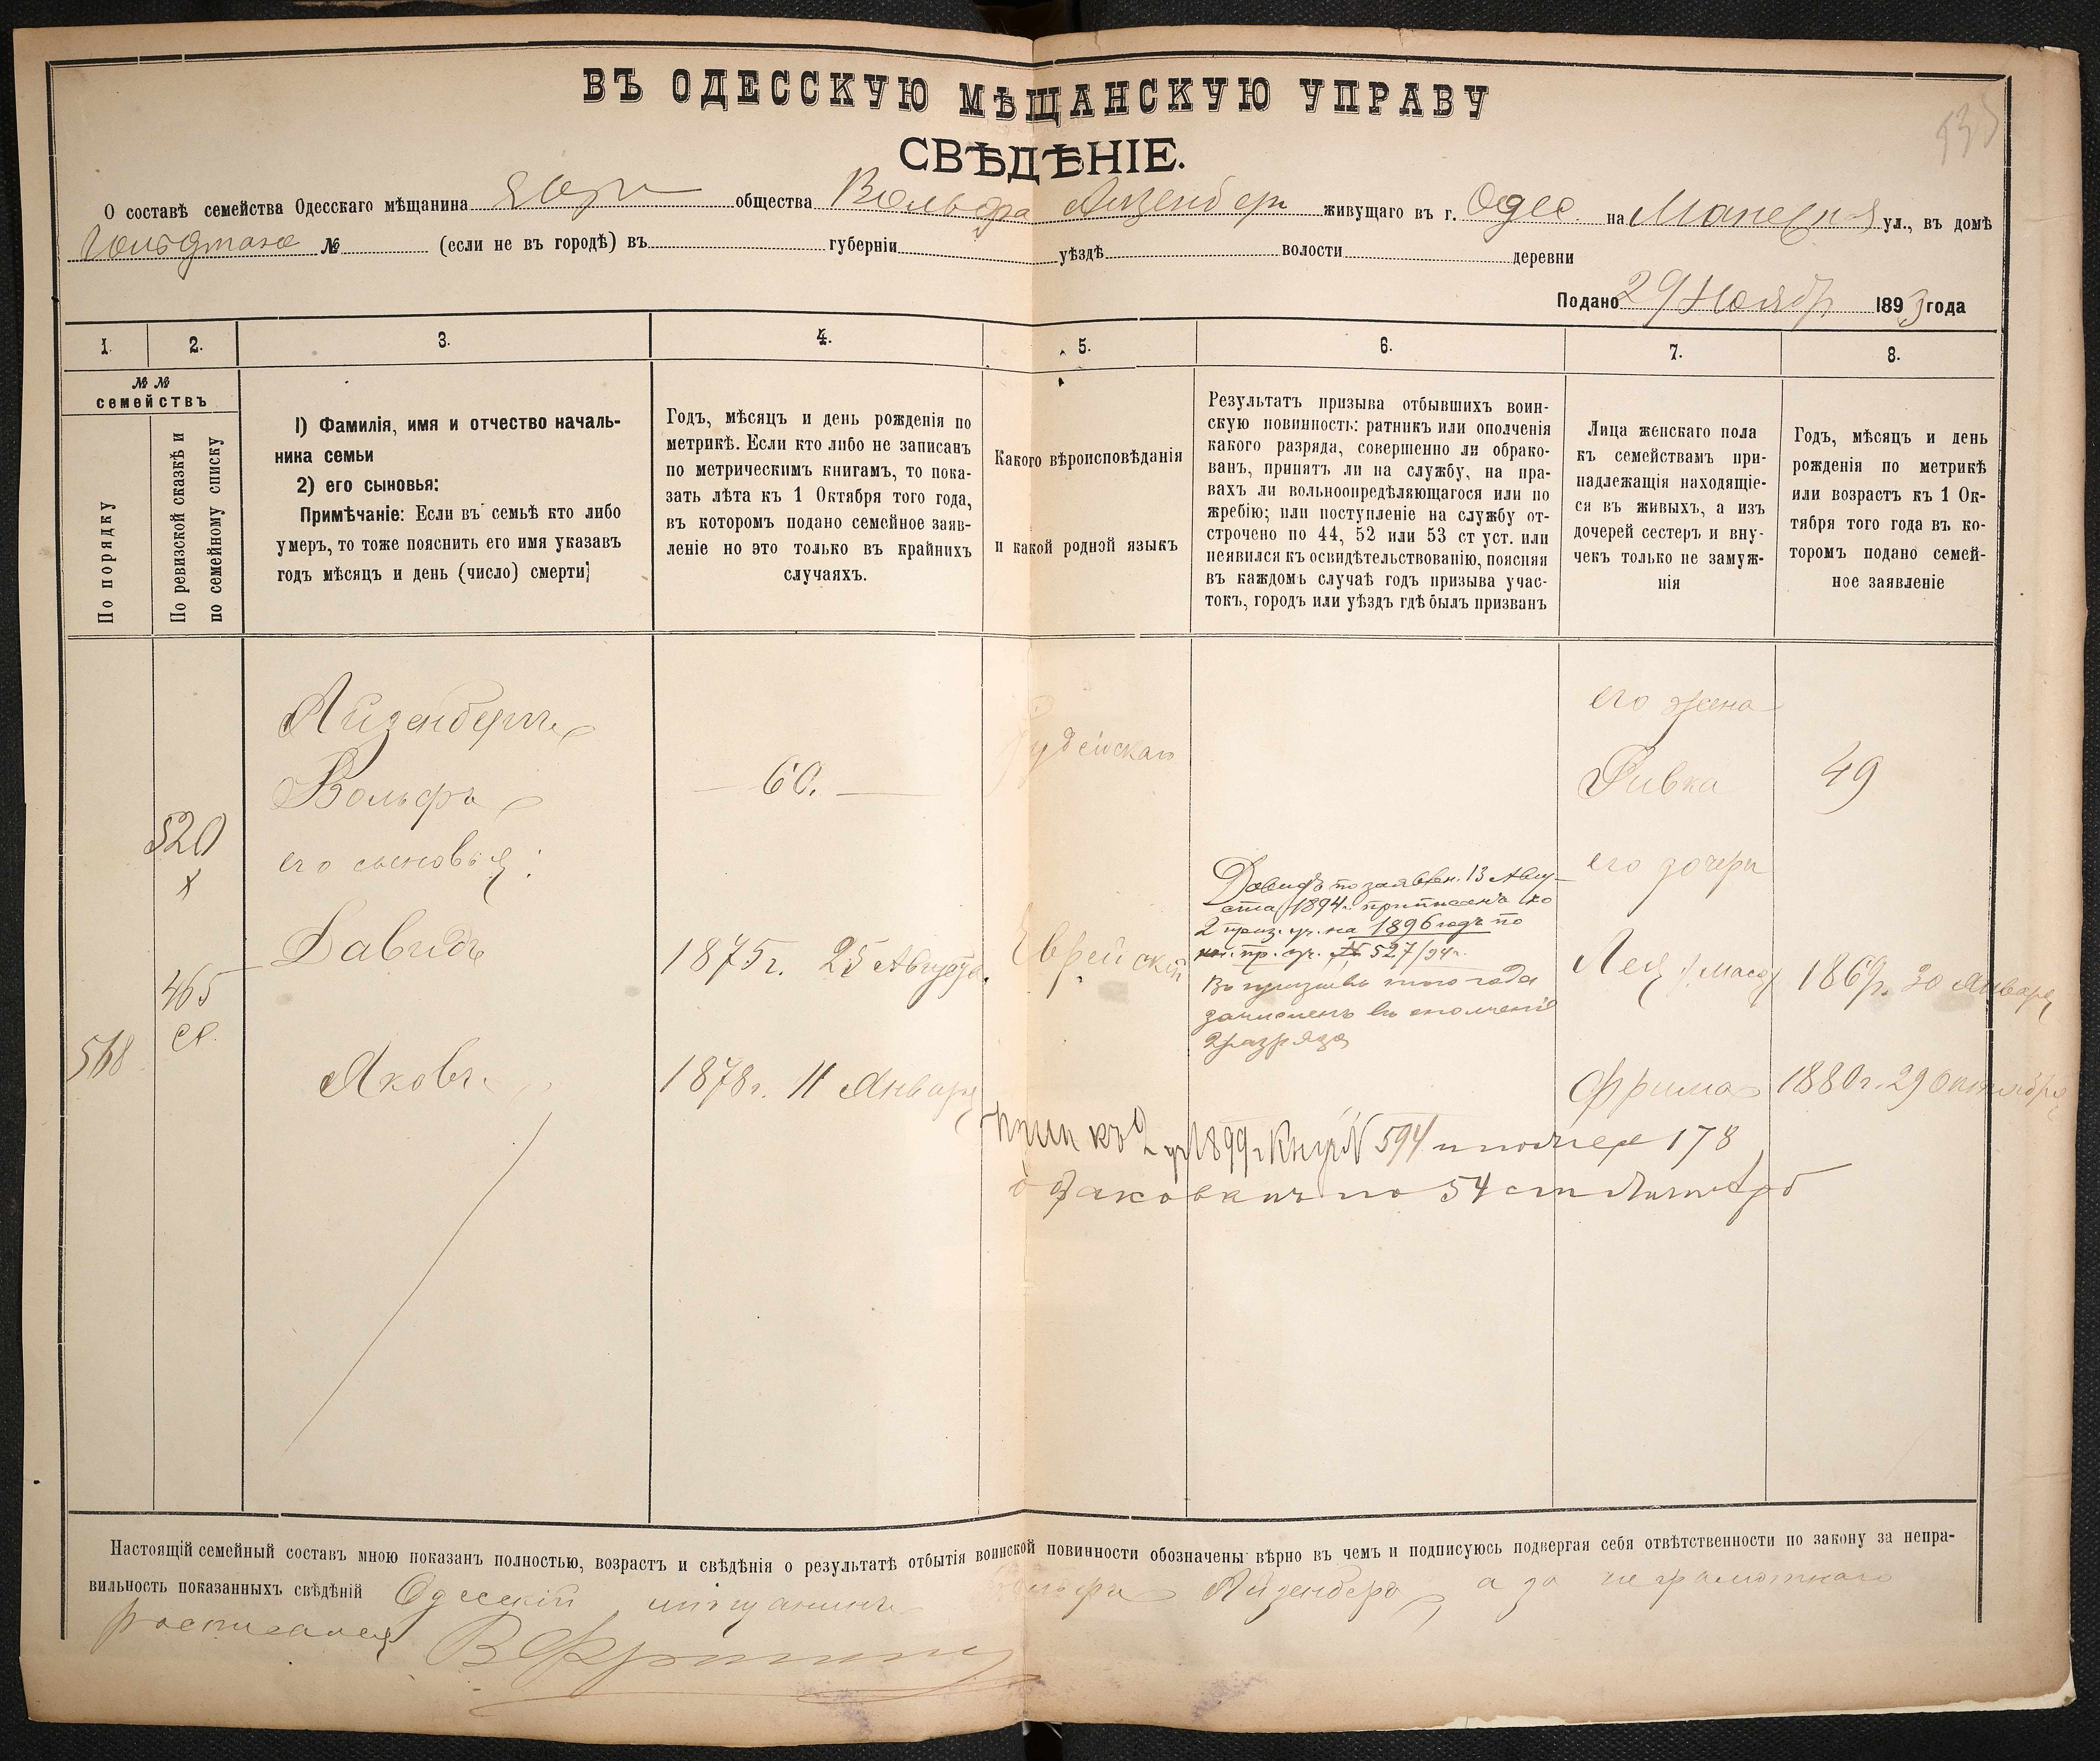 ВЪ ОДЕССКУЮ МѢЩАНСКУЮ УПРАВУ
СВѢДѢНІЕ.
О составѣ семейства Одесскаго мѣщанина общества Вольфа Айзенберг живущаго въ г. Одес. на ул., въ домѣ
№ (если не въ городѣ) въ губерніи уѣздѣ волости деревни
Подано 29 Ноябр 1893 года
1. 2. 3. 4. 5. 6. 7. 8.
№ №
семействъ
По порядку
По ревизской сказкѣ и
по семейному списку
1) Фамилія, имя и отчество началь-
ника семьи
2) его сыновья:
Примѣчаніе: Если въ семьѣ кто либо
умеръ, то тоже пояснить его имя указавъ
годъ мѣсяцъ и день (число) смерти;
Годъ, мѣсяцъ и день рожденія по
метрикѣ. Если кто либо не записанъ
по метрическимъ книгамъ, то пока-
зать лѣта къ 1 Октября того года,
въ которомъ подано семейное заяв-
леніе но это только въ крайнихъ
случаяхъ.
Какого вѣроисповѣданія
и какой родной языкъ
Результатъ призыва отбывшихъ воин-
скую повинность: ратникъ или ополченія
какого разряда, совершенно ли обрако-
ванъ, принятъ ли на службу, на пра-
вахъ ли вольноопредѣляющагося или по
жребію; или поступленіе на службу от-
строчено по 44, 52 или 53 ст уст. или
неявился къ освидѣтельствованію, поясняя
въ каждомъ случаѣ годъ призыва учас-
токъ, городъ или уѣздъ гдѣ былъ призванъ
Лица женскаго пола
къ семействамъ при-
надлежащія находящіе-
ся въ живыхъ, а изъ
дочерей сестеръ и вну-
чекъ только не замуж-
нія
Годъ, мѣсяцъ и день
рожденія по метрикѣ
или возрастъ къ 1 Ок-
тября того года въ ко-
торомъ подано семей-
ное заявленіе
520
х
465
568
Айзенбергъ
Вольфъ
его сыновья:
Давидъ
Яковъ
60.
1875г. 25 Августа.
1878г. 11 Января
Іудейская
Еврейскій
Давидъ по заявлен. 13 Авгу-
ста 1894г. приписанъ ко
2 приз. уч. на 1896 годъ по
кн. пр. уч. № 527/94г.
Въ призывъ того года
зачисленъ въ ополченіе
2 разряда
его жена
Ривка
его дочери
Лея /Мася/
Фрима
49
1869г. 30 Января
1880г. 29 Октября
къ 2 уч 1899г № 594 178
по 54 ст
Настоящій семейный составъ мною показанъ полностью, возрастъ и свѣдѣнія о результатѣ отбытія воинской повинности обозначены вѣрно въ чемъ и подписуюсь подвергая себя отвѣтственности по закону за непра-
вильность показанныхъ свѣдѣній Одесскій мѣщанинъ Вольфъ Айзенбергъ, а за неграмотнаго
росписался